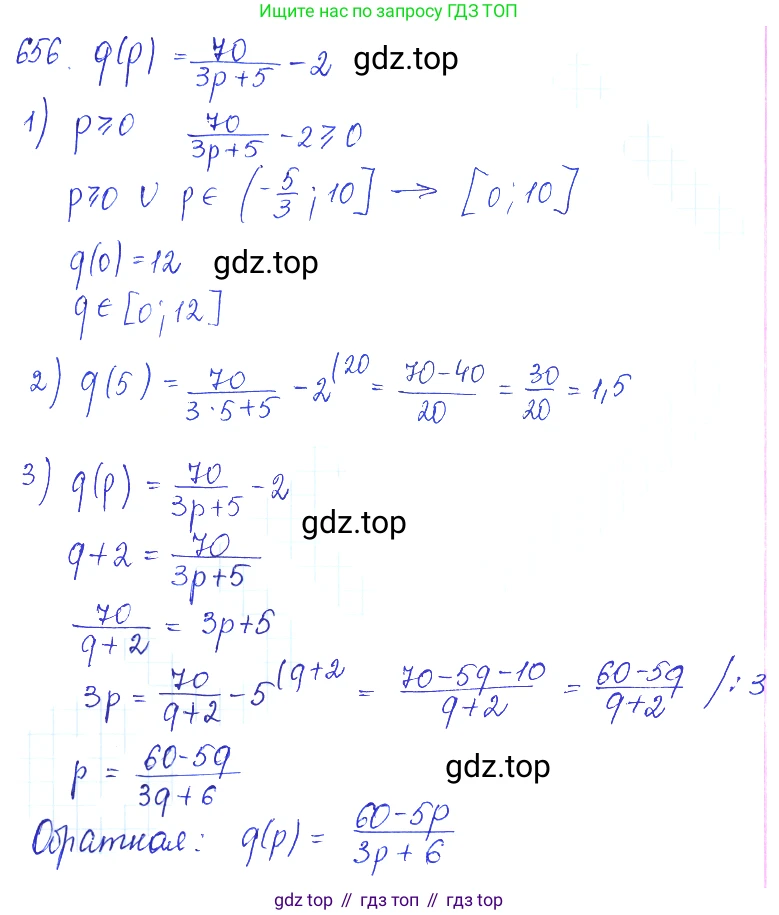 Ищите нас по запросу ГДЗ ТОП
656. q(p) = 70/(3p+5) - 2 gdz.top
1) p⩾0 70/(3p+5) - 2⩾0
p⩾0 ∪ p∈ (-5/3; 10] → [0; 10]
q(0) = 12 gdz.top
q∈[0; 12]
2) q(5) = 70/(3·5+5) - 2^(20 = (70-40)/20 = 30/20 = 1,5
3) q(p) = 70/(3p+5) - 2
gdz.top
q+2 = 70/(3p+5)
70/(q+2) = 3p+5
3p = 70/(q+2) - 5^(q+2 = (70-5q-10)/(q+2) = (60-5q)/(q+2) /:3
p = (60-5q)/(3q+6) gdz.top
Обратная: q(p) = (60-5p)/(3p+6)
gdz top // гдз топ // gdz.top